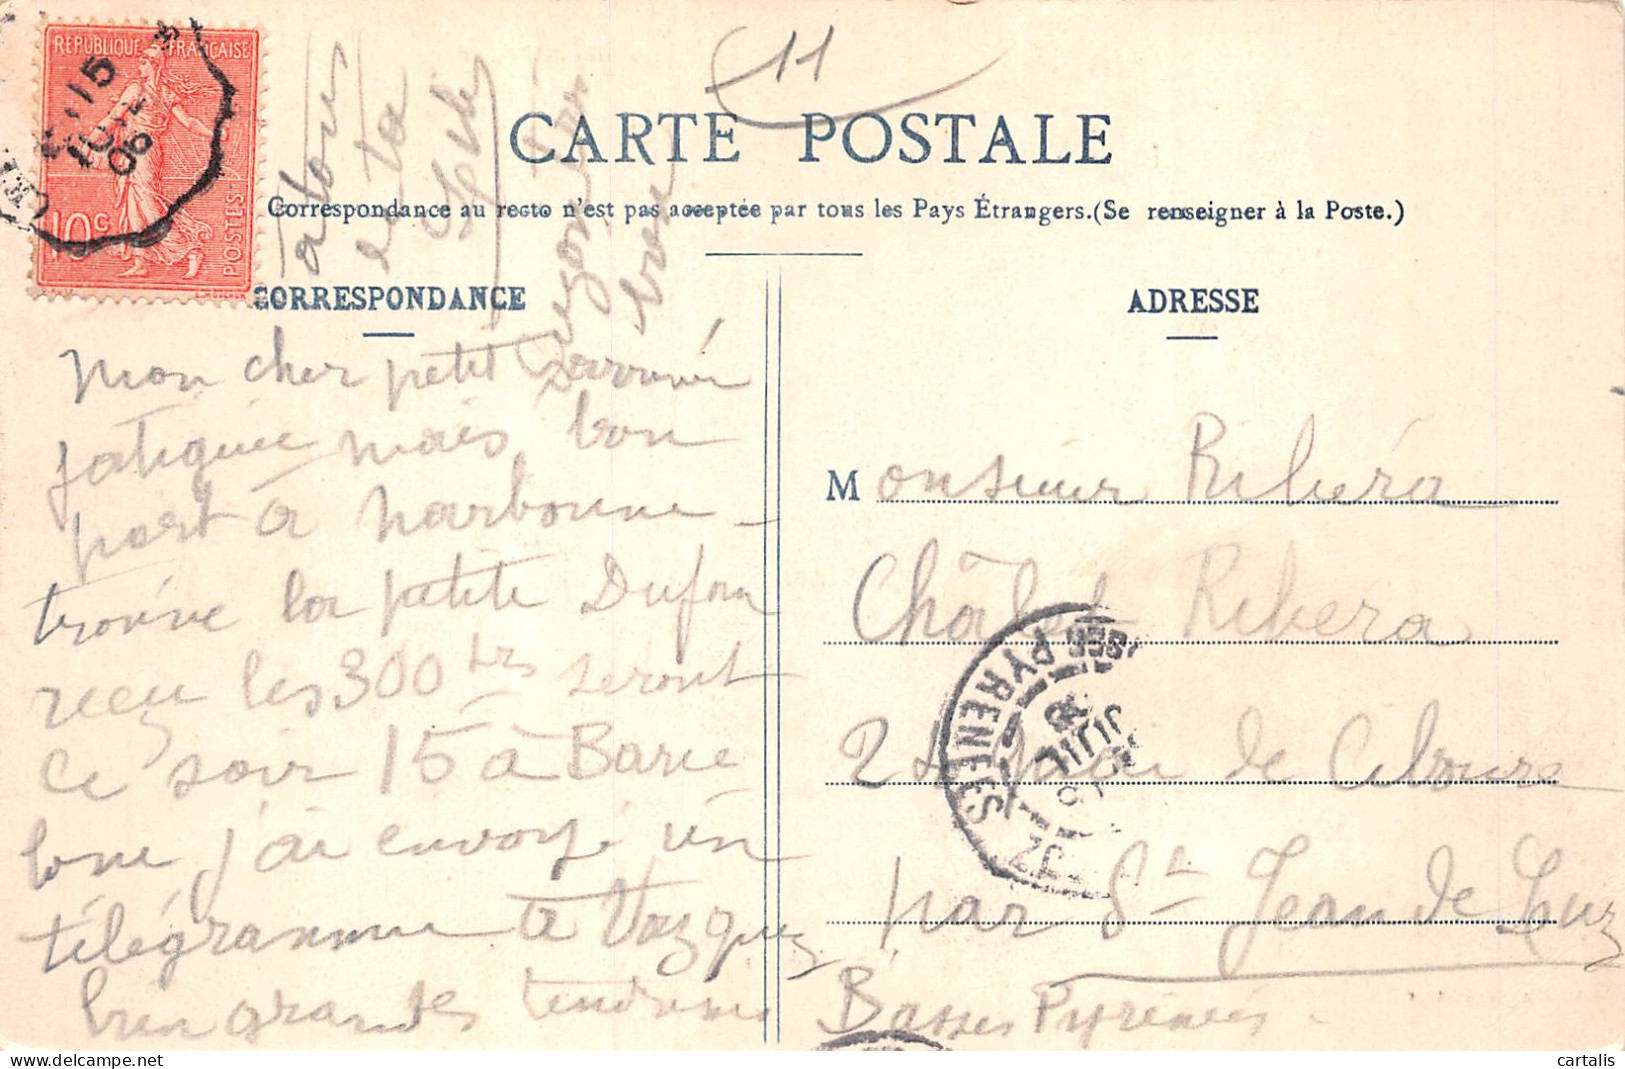 RÉPUBLIQUE FRANÇAISE
10c
POSTES
15
06
11
CARTE POSTALE
Correspondance au recto n'est pas acceptée par tous les Pays Étrangers.(Se renseigner à la Poste.)
CORRESPONDANCE
ADRESSE
Mon cher petit arrivée
fatiguée mais bon
port à Narbonne -
trouve la petite Dufour
reçu les 300 frs seront
ce soir 15 à Barce
lone j'ai envoyé un
télégramme à Vazquez
bien grandes tendresses
Monsieur Ribéra
Châlet Ribera
de Ciboure
par St Jean de Luz
Basses Pyrénées.
PYRENEES
JUIL
cartalis